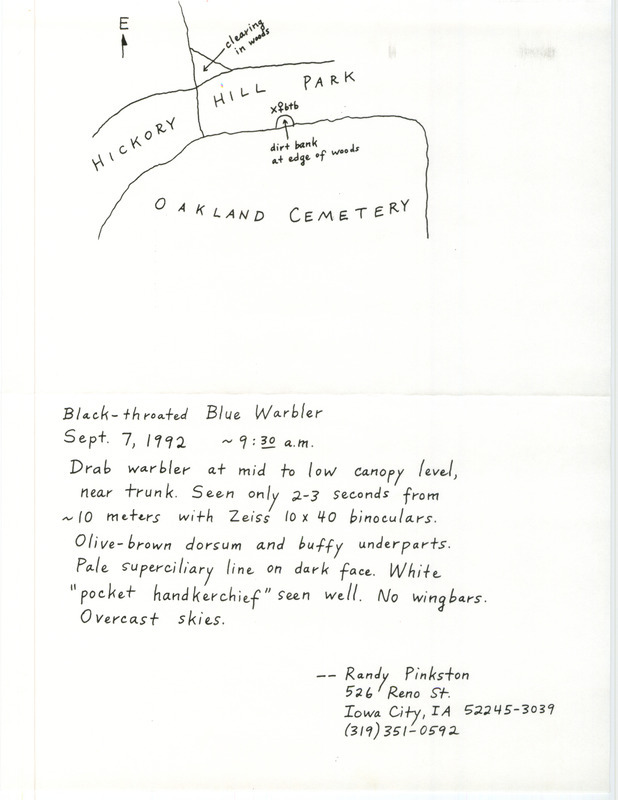 E
clearing
in woods
HICKORY HILL PARK
x♀btb
dirt bank
at edge of woods
OAKLAND CEMETERY
Black-throated Blue Warbler
Sept. 7, 1992 ~ 9:30 a.m.
Drab warbler at mid to low canopy level,
near trunk. Seen only 2-3 seconds from
~10 meters with Zeiss 10 x 40 binoculars.
Olive-brown dorsum and buffy underparts.
Pale superciliary line on dark face. White
"pocket handkerchief" seen well. No wingbars.
Overcast skies.
-- Randy Pinkston
526 Reno St.
Iowa City, IA 52245-3039
(319) 351-0592